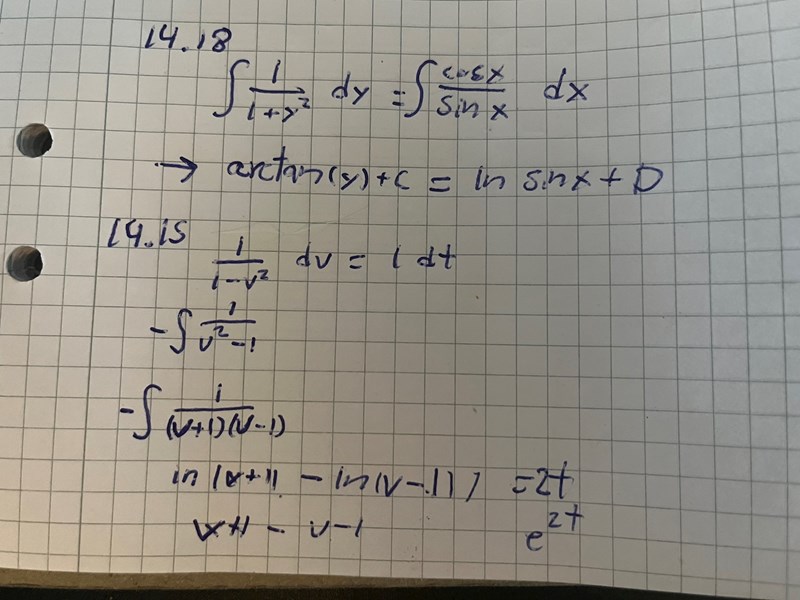 14.18
∫ 1/(1+y²) dy = ∫ cosx/sinx dx
→ arctan(y)+C = ln sinx + D
14.15
1/(1-v²) dv = 1 dt
-∫ 1/(v²-1)
-∫ 1/((v+1)(v-1))
ln|v+1| - ln(v-1)) = 2t
v+1 - v-1 e^2t